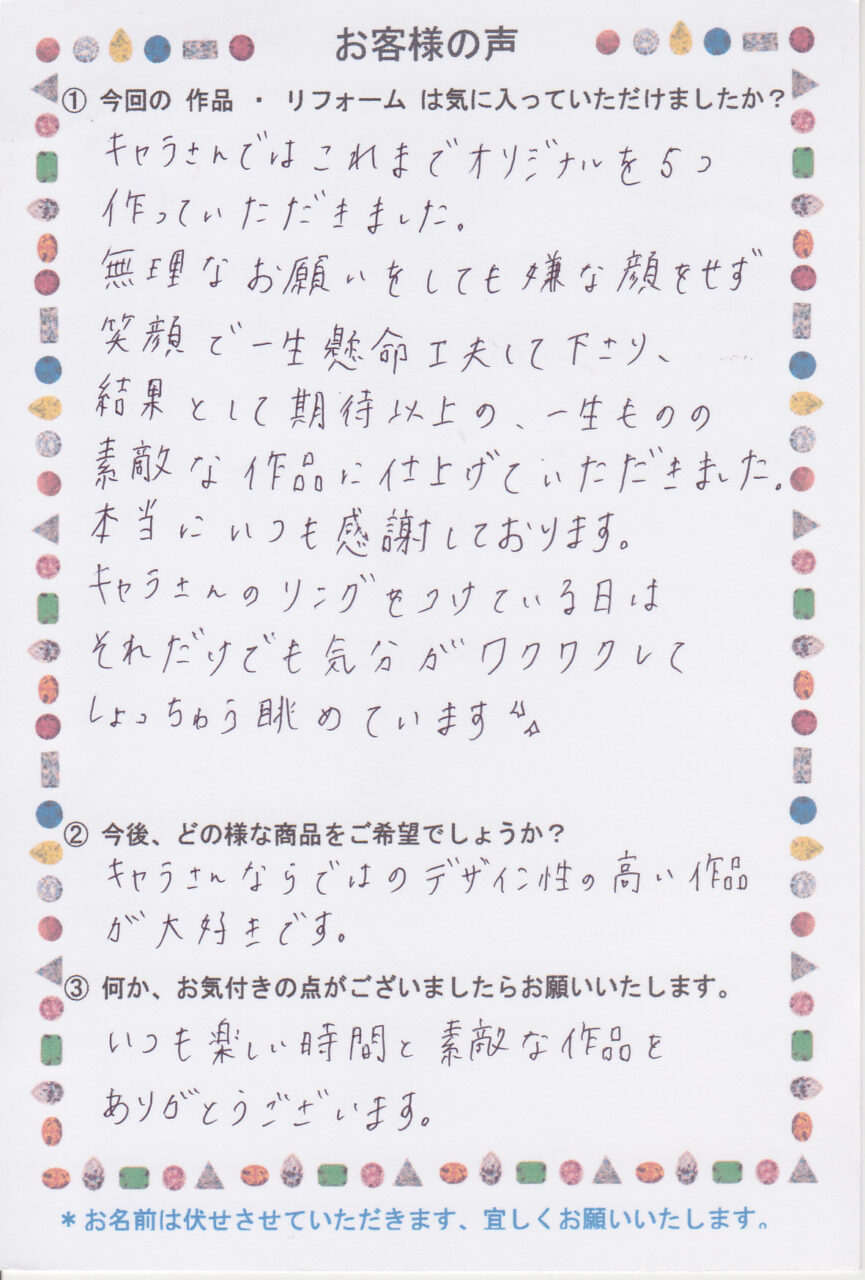 お客様の声
① 今回の 作品 ・ リフォーム は気に入っていただけましたか？
キャラさんではこれまでオリジナルを5つ
作っていただきました。
無理なお願いをしても嫌な顔をせず
笑顔で一生懸命工夫して下さり、
結果として期待以上の、一生ものの
素敵な作品に仕上げていただきました。
本当にいつも感謝しております。
キャラさんのリングをつけている日は
それだけでも気分がワクワクして
しょっちゅう眺めています
② 今後、どの様な商品をご希望でしょうか？
キャラさんならではのデザイン性の高い作品
が大好きです。
③ 何か、お気付きの点がございましたらお願いいたします。
いつも楽しい時間と素敵な作品を
ありがとうございます。
＊お名前は伏せさせていただきます、宜しくお願いいたします。